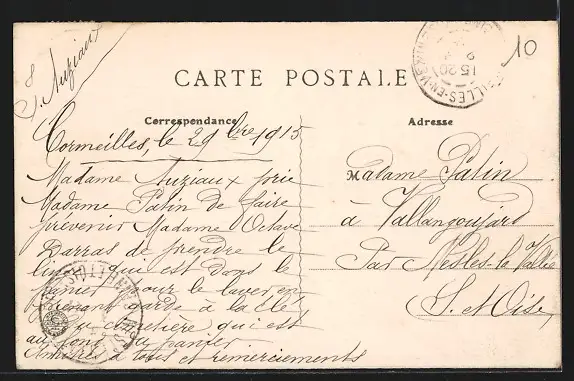 J. Auziaux
10
CARTE POSTALE
Correspondance
Adresse
Cormeilles, le 29 bre 1915
Madame Auziaux prie
Madame Patin de faire
prévenir Madame Octave
Darras de prendre le
linge qui est dans le
panier pour le laver en
prenant garde à la clé
du cimetière qui est
au fond du panier
Amitiés à tous et remerciements
Madame Patin
à Vallangoujard
Par Nesles-la-Vallée
S. et Oise
15-20